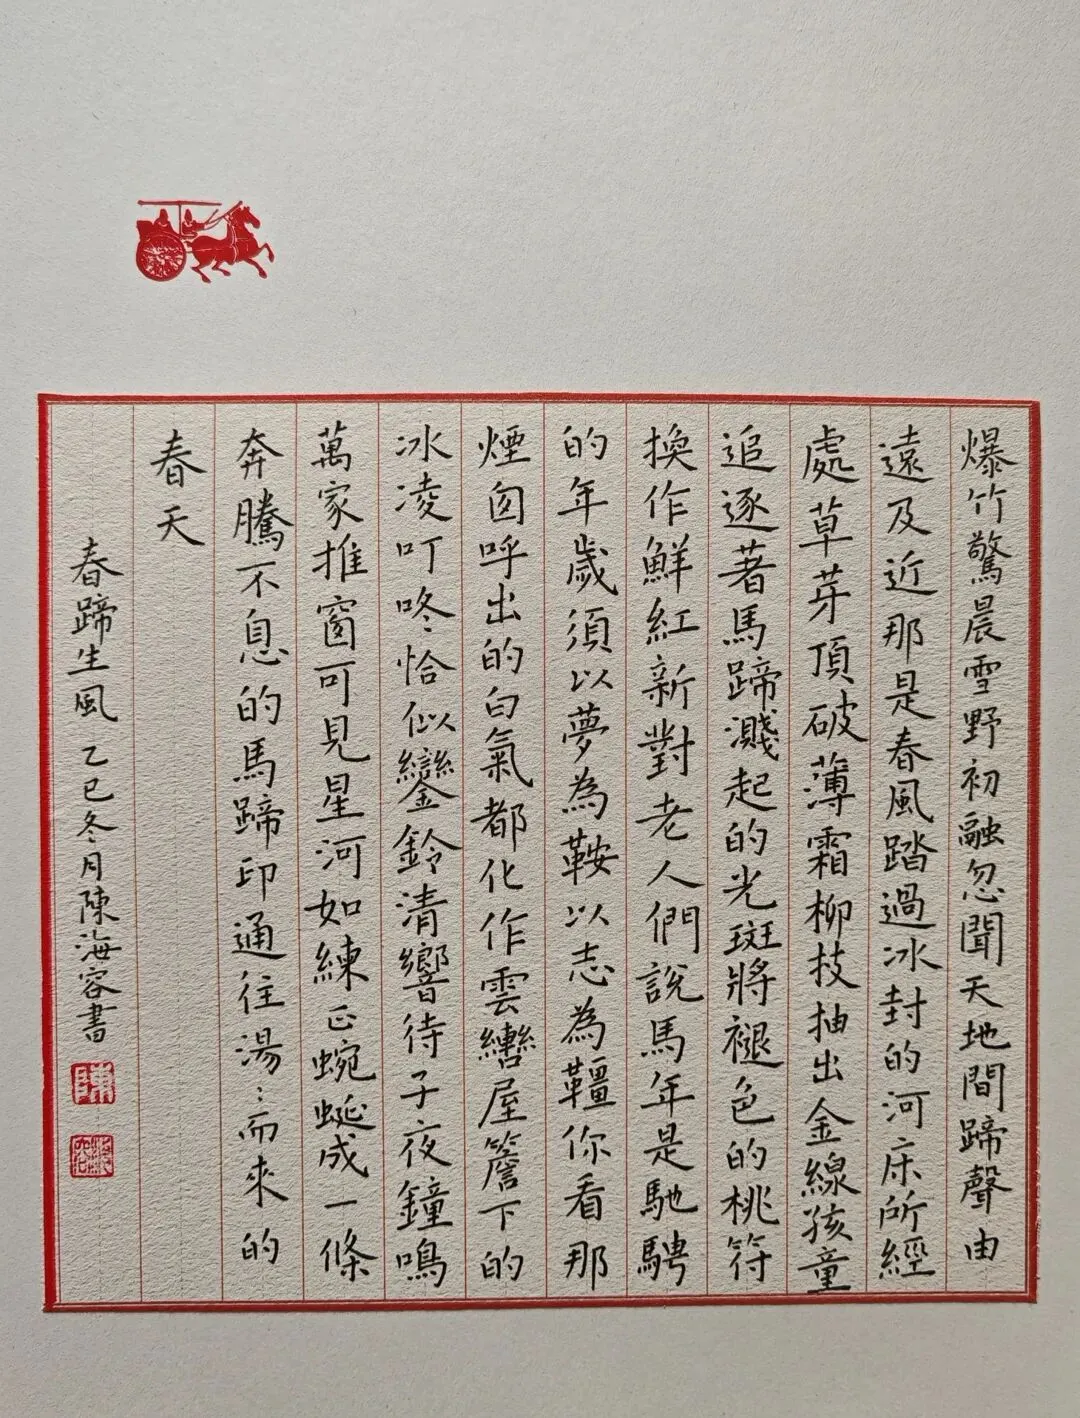 爆竹驚晨雪野初融忽聞天地間蹄聲由
遠及近那是春風踏過冰封的河床所經
處草芽頂破薄霜柳枝抽出金線孩童
追逐著馬蹄濺起的光斑將褪色的桃符
換作鮮紅新對老人們說馬年是馳騁
的年歲須以夢為鞍以志為韁你看那
煙囱呼出的白氣都化作雲轡屋簷下的
冰凌叮咚恰似鑾鈴清響待子夜鐘鳴
萬家推窗可見星河如練正蜿蜒成一條
奔騰不息的馬蹄印通往湯:而來的
春天
春蹄生風乙巳冬月陳海容書
陳
海容